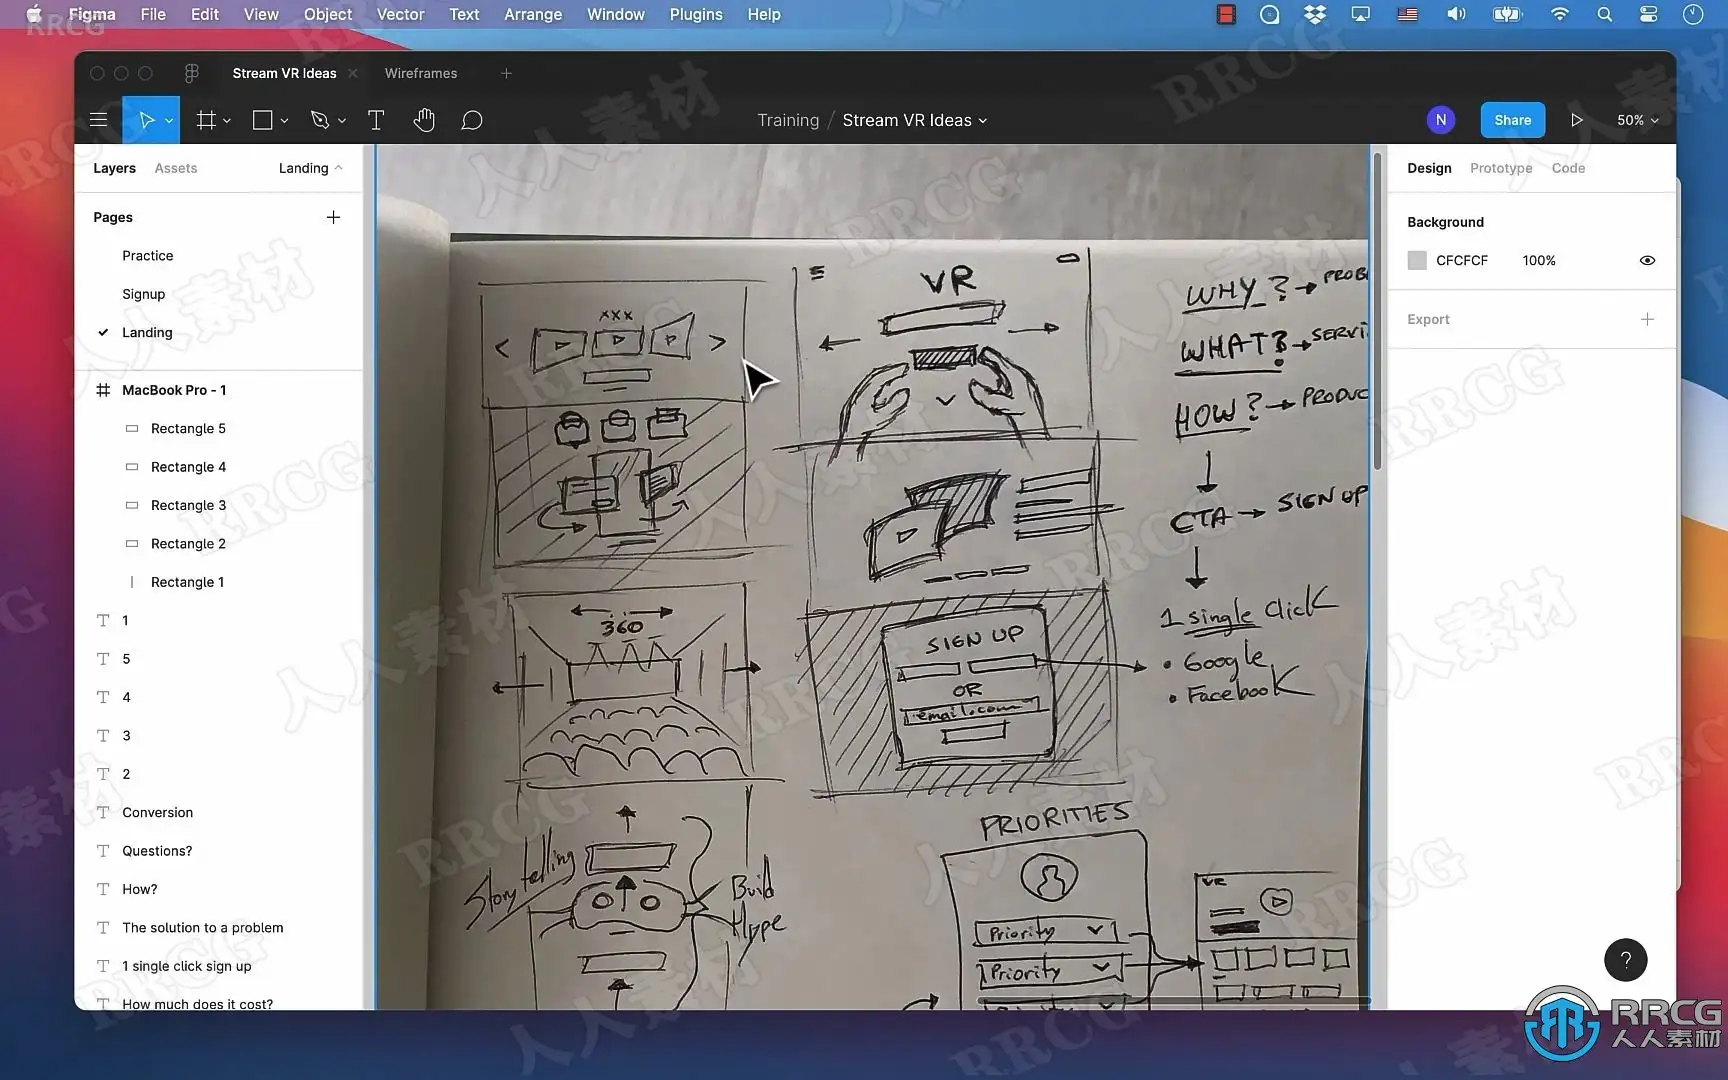 Figma File Edit View Object Vector Text Arrange Window Plugins Help
Stream VR Ideas
Wireframes
Training / Stream VR Ideas
N
Share
50%
Layers
Assets
Landing
Pages
Practice
Signup
Landing
MacBook Pro - 1
Rectangle 5
Rectangle 4
Rectangle 3
Rectangle 2
Rectangle 1
1
5
4
3
2
Conversion
Questions?
How?
The solution to a problem
1 single click sign up
How much does it cost?
XXX
360
Story telling
Build
Hype
VR
SIGN UP
OR
email.com
PRIORITIES
Priority
Priority
VR
WHY? → PROB
WHAT? → SERVI
HOW? → PRODUC
CTA → SIGN UP
1 single Click
• Google
• Facebook
Design
Prototype
Code
Background
CFCFCF
100%
Export
?
RRCG
人人素材